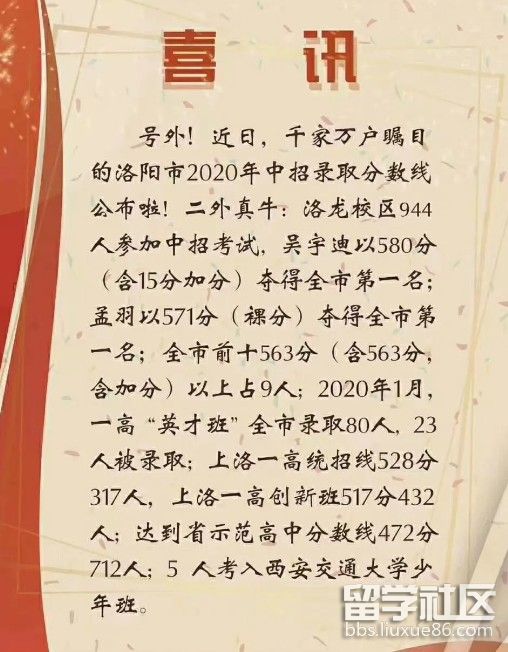 喜 讯
号外！近日，千家万户瞩目
的洛阳市2020年中招录取分数线
公布啦！二外真牛：洛龙校区944
人参加中招考试，吴宇迪以580分
（含15分加分）夺得全市第一名；
孟羽以571分（裸分）夺得全市第
一名；全市前十563分（含563分，
含加分）以上占9人；2020年1月，
一高“英才班”全市录取80人，23
人被录取；上洛一高统招线528分
317人，上洛一高创新班517分432
人；达到省示范高中分数线472分
712人；5 人考入西安交通大学少
年班。
留学社区
bbs.liuxue86.com